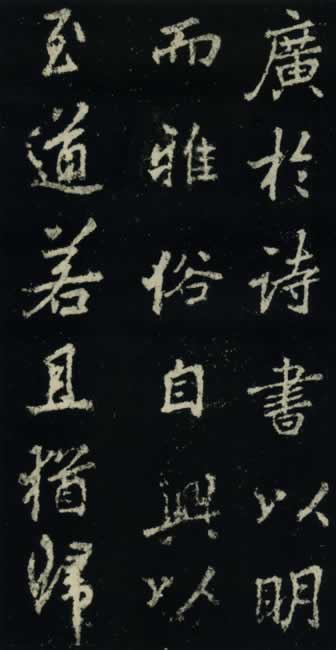 廣於詩書以明
而雅俗自興以
至道若且猶歸